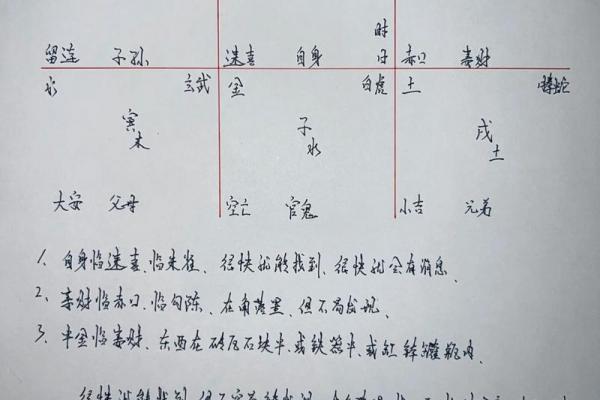 时
留连 子孙 速喜 自身 日 赤口 妻财
水 玄武 金 白虎 土 螣蛇
寅 子 戌
木 水 土
大安 父母 空亡 官鬼 小吉 兄弟
1、自身临速喜、临朱雀、很快就能找到、很快就会有消息.
2、妻财临赤口、临勾陈、在角落里、但不易发现、
3、半金临妻财、东西在砖瓦石块中、或铁器中、或缸钵罐瓶内.